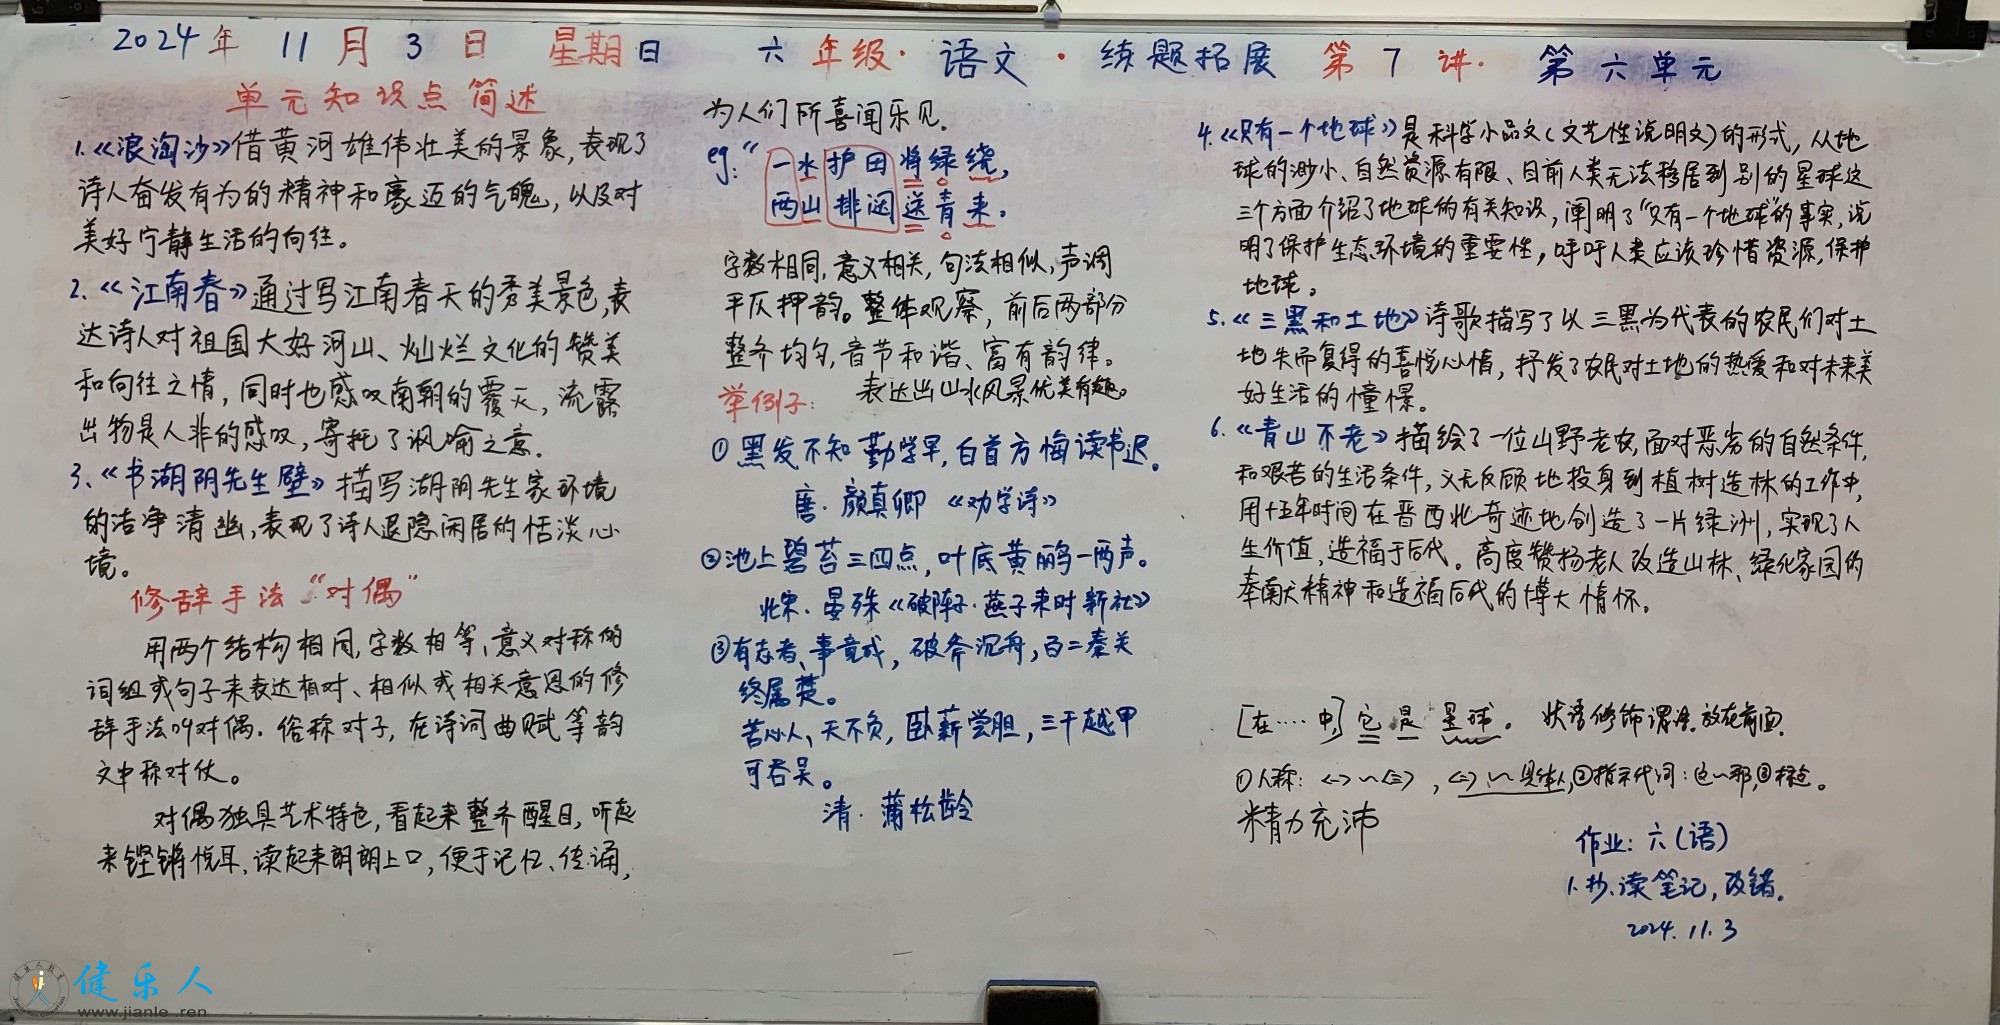 2024年 11月3日 星期日 六年级·语文·练题拓展 第7讲·第六单元
单元知识点简述
1.《浪淘沙》借黄河雄伟壮美的景象,表现了
诗人奋发有为的精神和豪迈的气魄,以及对
美好宁静生活的向往。
2.《江南春》通过写江南春天的秀美景色,表
达诗人对祖国大好河山、灿烂文化的赞美
和向往之情,同时也感叹南朝的覆灭,流露
出物是人非的感叹,寄托了讽喻之意.
3.《书湖阴先生壁》描写湖阴先生家环境
的洁净清幽,表现了诗人退隐闲居的恬淡心
境。
修辞手法“对偶”
用两个结构相同,字数相等、意义对称的
词组或句子来表达相对、相似或相关意思的修
辞手法叫对偶.俗称对子,在诗词曲赋等韵
文中称对仗。
对偶独具艺术特色,看起来整齐醒目,听起
来铿锵悦耳,读起来朗朗上口,便于记忆、传诵,
为人们所喜闻乐见.
eg:“一水护田将绿绕,
两山排闼送青来。
字数相同,意义相关,句法相似,声调
平仄押韵。整体观察,前后两部分
整齐均匀,音节和谐、富有韵律。
表达出山水风景优美有趣。
举例子:
①黑发不知勤学早,白首方悔读书迟。
唐·颜真卿《劝学诗》
②池上碧苔三四点,叶底黄鹂一两声。
北宋·晏殊《破阵子·燕子来时新社》
③有志者、事竟成,破斧沉舟,百二秦关
终属楚。
苦心人、天不负,卧薪尝胆,三千越甲
可吞吴。
清·蒲松龄
4.《只有一个地球》是科学小品文(文艺性说明文)的形式,从地
球的渺小、自然资源有限、目前人类无法移居到别的星球这
三个方面介绍了地球的有关知识,阐明了“只有一个地球”的事实,说
明了保护生态环境的重要性,呼吁人类应该珍惜资源,保护
地球。
5.《三黑和土地》诗歌描写了以三黑为代表的农民们对土
地失而复得的喜悦心情,抒发了农民对土地的热爱和对未来美
好生活的憧憬。
6.《青山不老》描绘了一位山野老农,面对恶劣的自然条件,
和艰苦的生活条件,义无反顾地投身到植树造林的工作中,
用十五年时间在晋西北奇迹地创造了一片绿洲,实现了人
生价值,造福于后代。高度赞扬老人改造山林、绿化家园的
奉献精神和造福后代的博大情怀。
[在……中]它是星球。 状语修饰谓语.放在前面.
①人称: <一>~<三>, <三>~具体人,②指示代词:这~那,③
精力充沛
作业:六(语)
1.抄、读笔记,改错.
2024.11.3
健乐人
www.jianle.ren